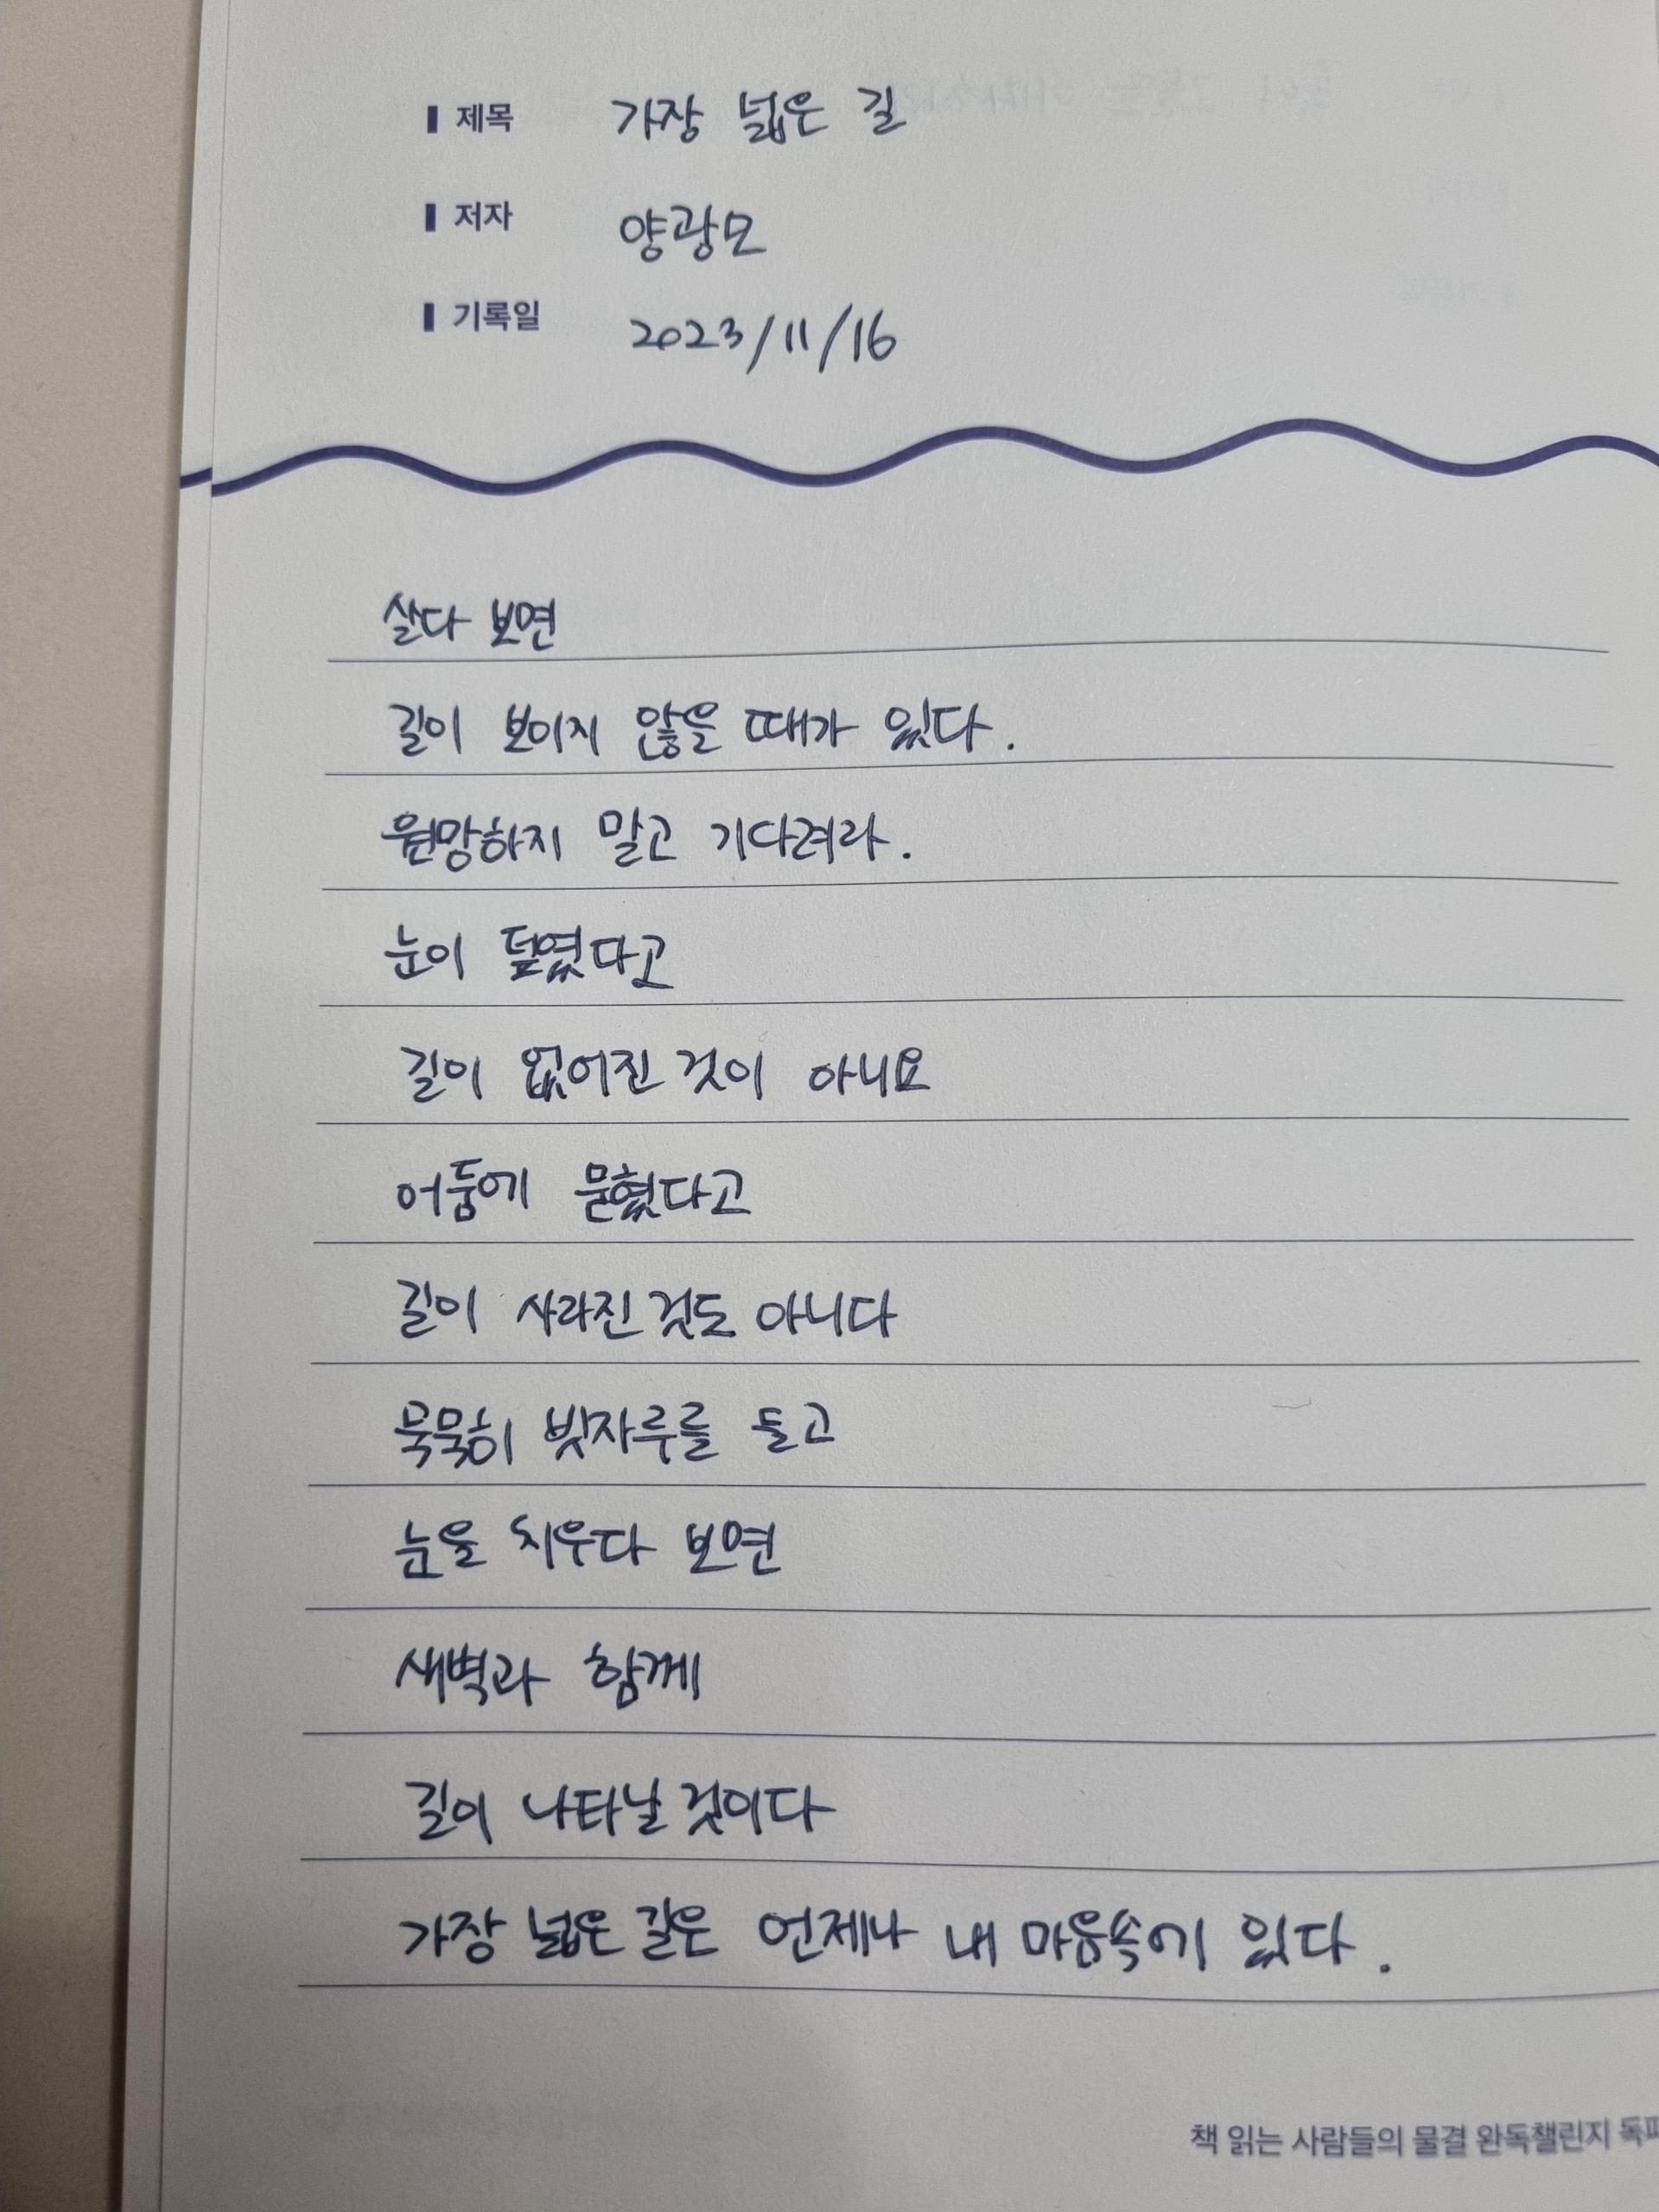 제목 가장 넓은 길
저자 양광모
기록일 2023/11/16
살다 보면
길이 보이지 않을 때가 있다.
원망하지 말고 기다려라.
눈이 덮였다고
길이 없어진 것이 아니요
어둠에 묻혔다고
길이 사라진 것도 아니다
묵묵히 빗자루를 들고
눈을 치우다 보면
새벽과 함께
길이 나타날 것이다
가장 넓은 길은 언제나 내 마음속에 있다.
책 읽는 사람들의 물결 완독챌린지 독파